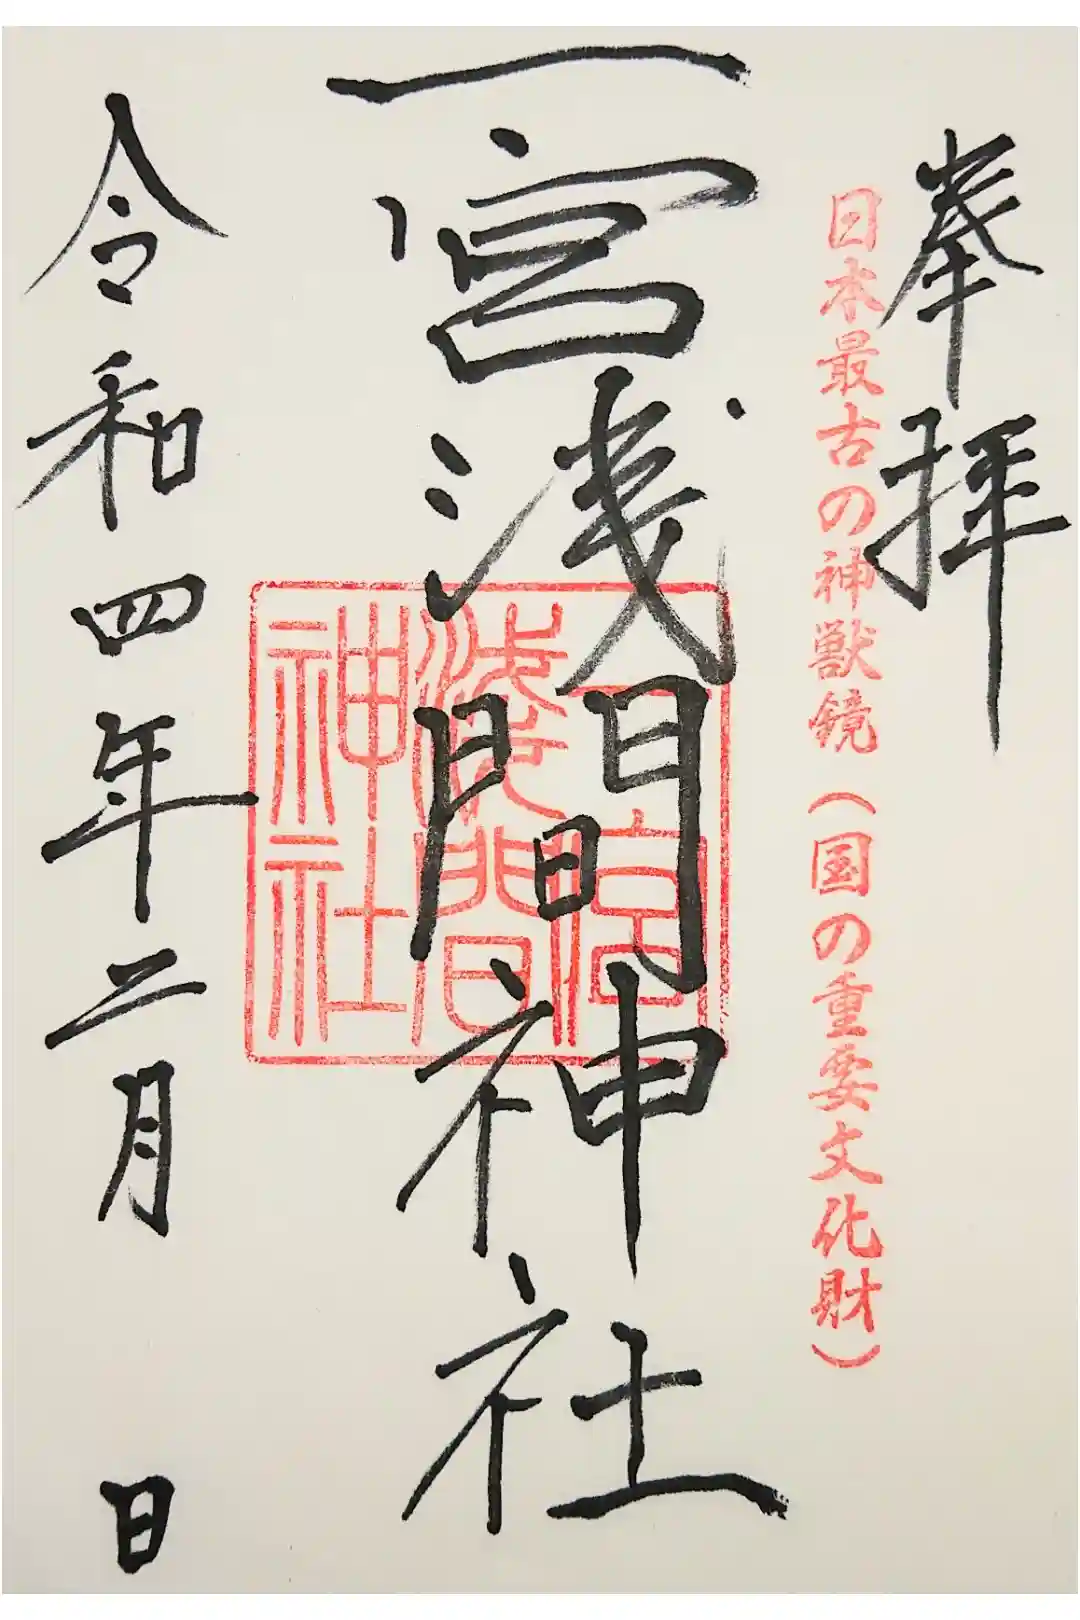 奉拝
日本最古の神獣鏡（国の重要文化財）
一宮浅間神社
一宮
浅間
神社
令和四年二月 日